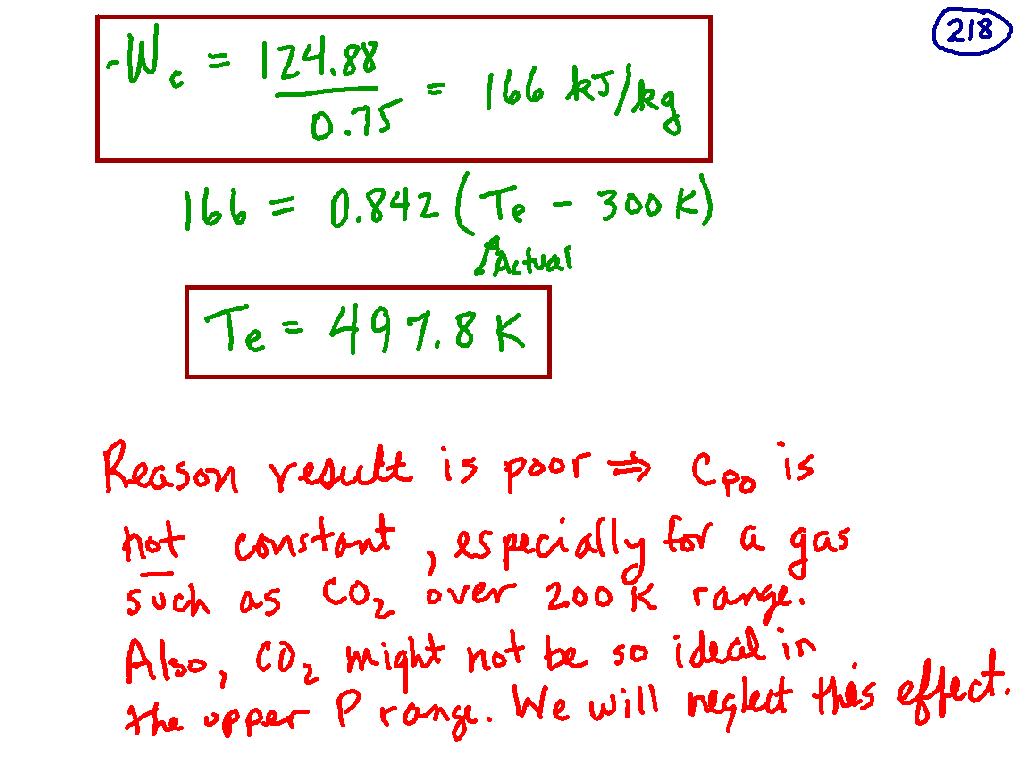 218
-Wc = 124.88 / 0.75 = 166 kJ/kg
166 = 0.842 (Te - 300 K)
Actual
Te = 497.8 K
Reason result is poor ⇒ CPo is
not constant, especially for a gas
such as CO2 over 200 K range.
Also, CO2 might not be so ideal in
the upper P range. We will neglect this effect.